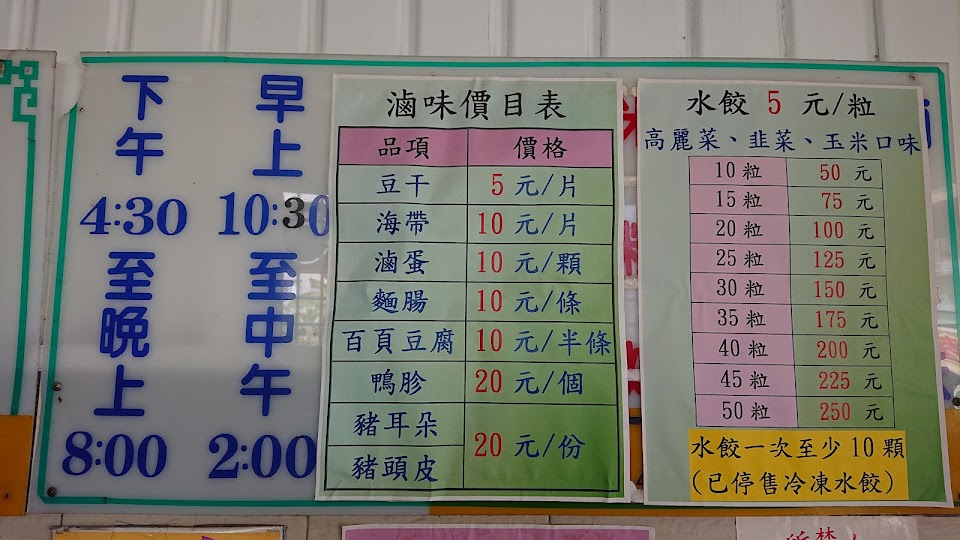 早上
10:30
至中午
2:00
下午
4:30
至晚上
8:00
滷味價目表
品項 價格
豆干 5 元/片
海帶 10 元/片
滷蛋 10 元/顆
麵腸 10 元/條
百頁豆腐 10 元/半條
鴨胗 20 元/個
豬耳朵
豬頭皮
20 元/份
水餃 5 元/粒
高麗菜、韭菜、玉米口味
10 粒 50 元
15 粒 75 元
20 粒 100 元
25 粒 125 元
30 粒 150 元
35 粒 175 元
40 粒 200 元
45 粒 225 元
50 粒 250 元
水餃一次至少 10 顆
(已停售冷凍水餃)